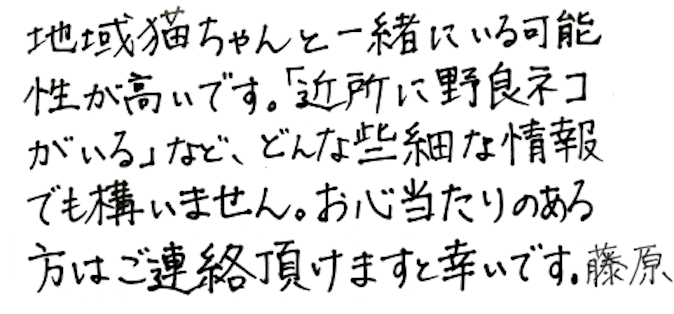 地域猫ちゃんと一緒にいる可能
性が高いです。「近所に野良ネコ
がいる」など、どんな些細な情報
でも構いません。お心当たりのある
方はご連絡頂けますと幸いです。藤原